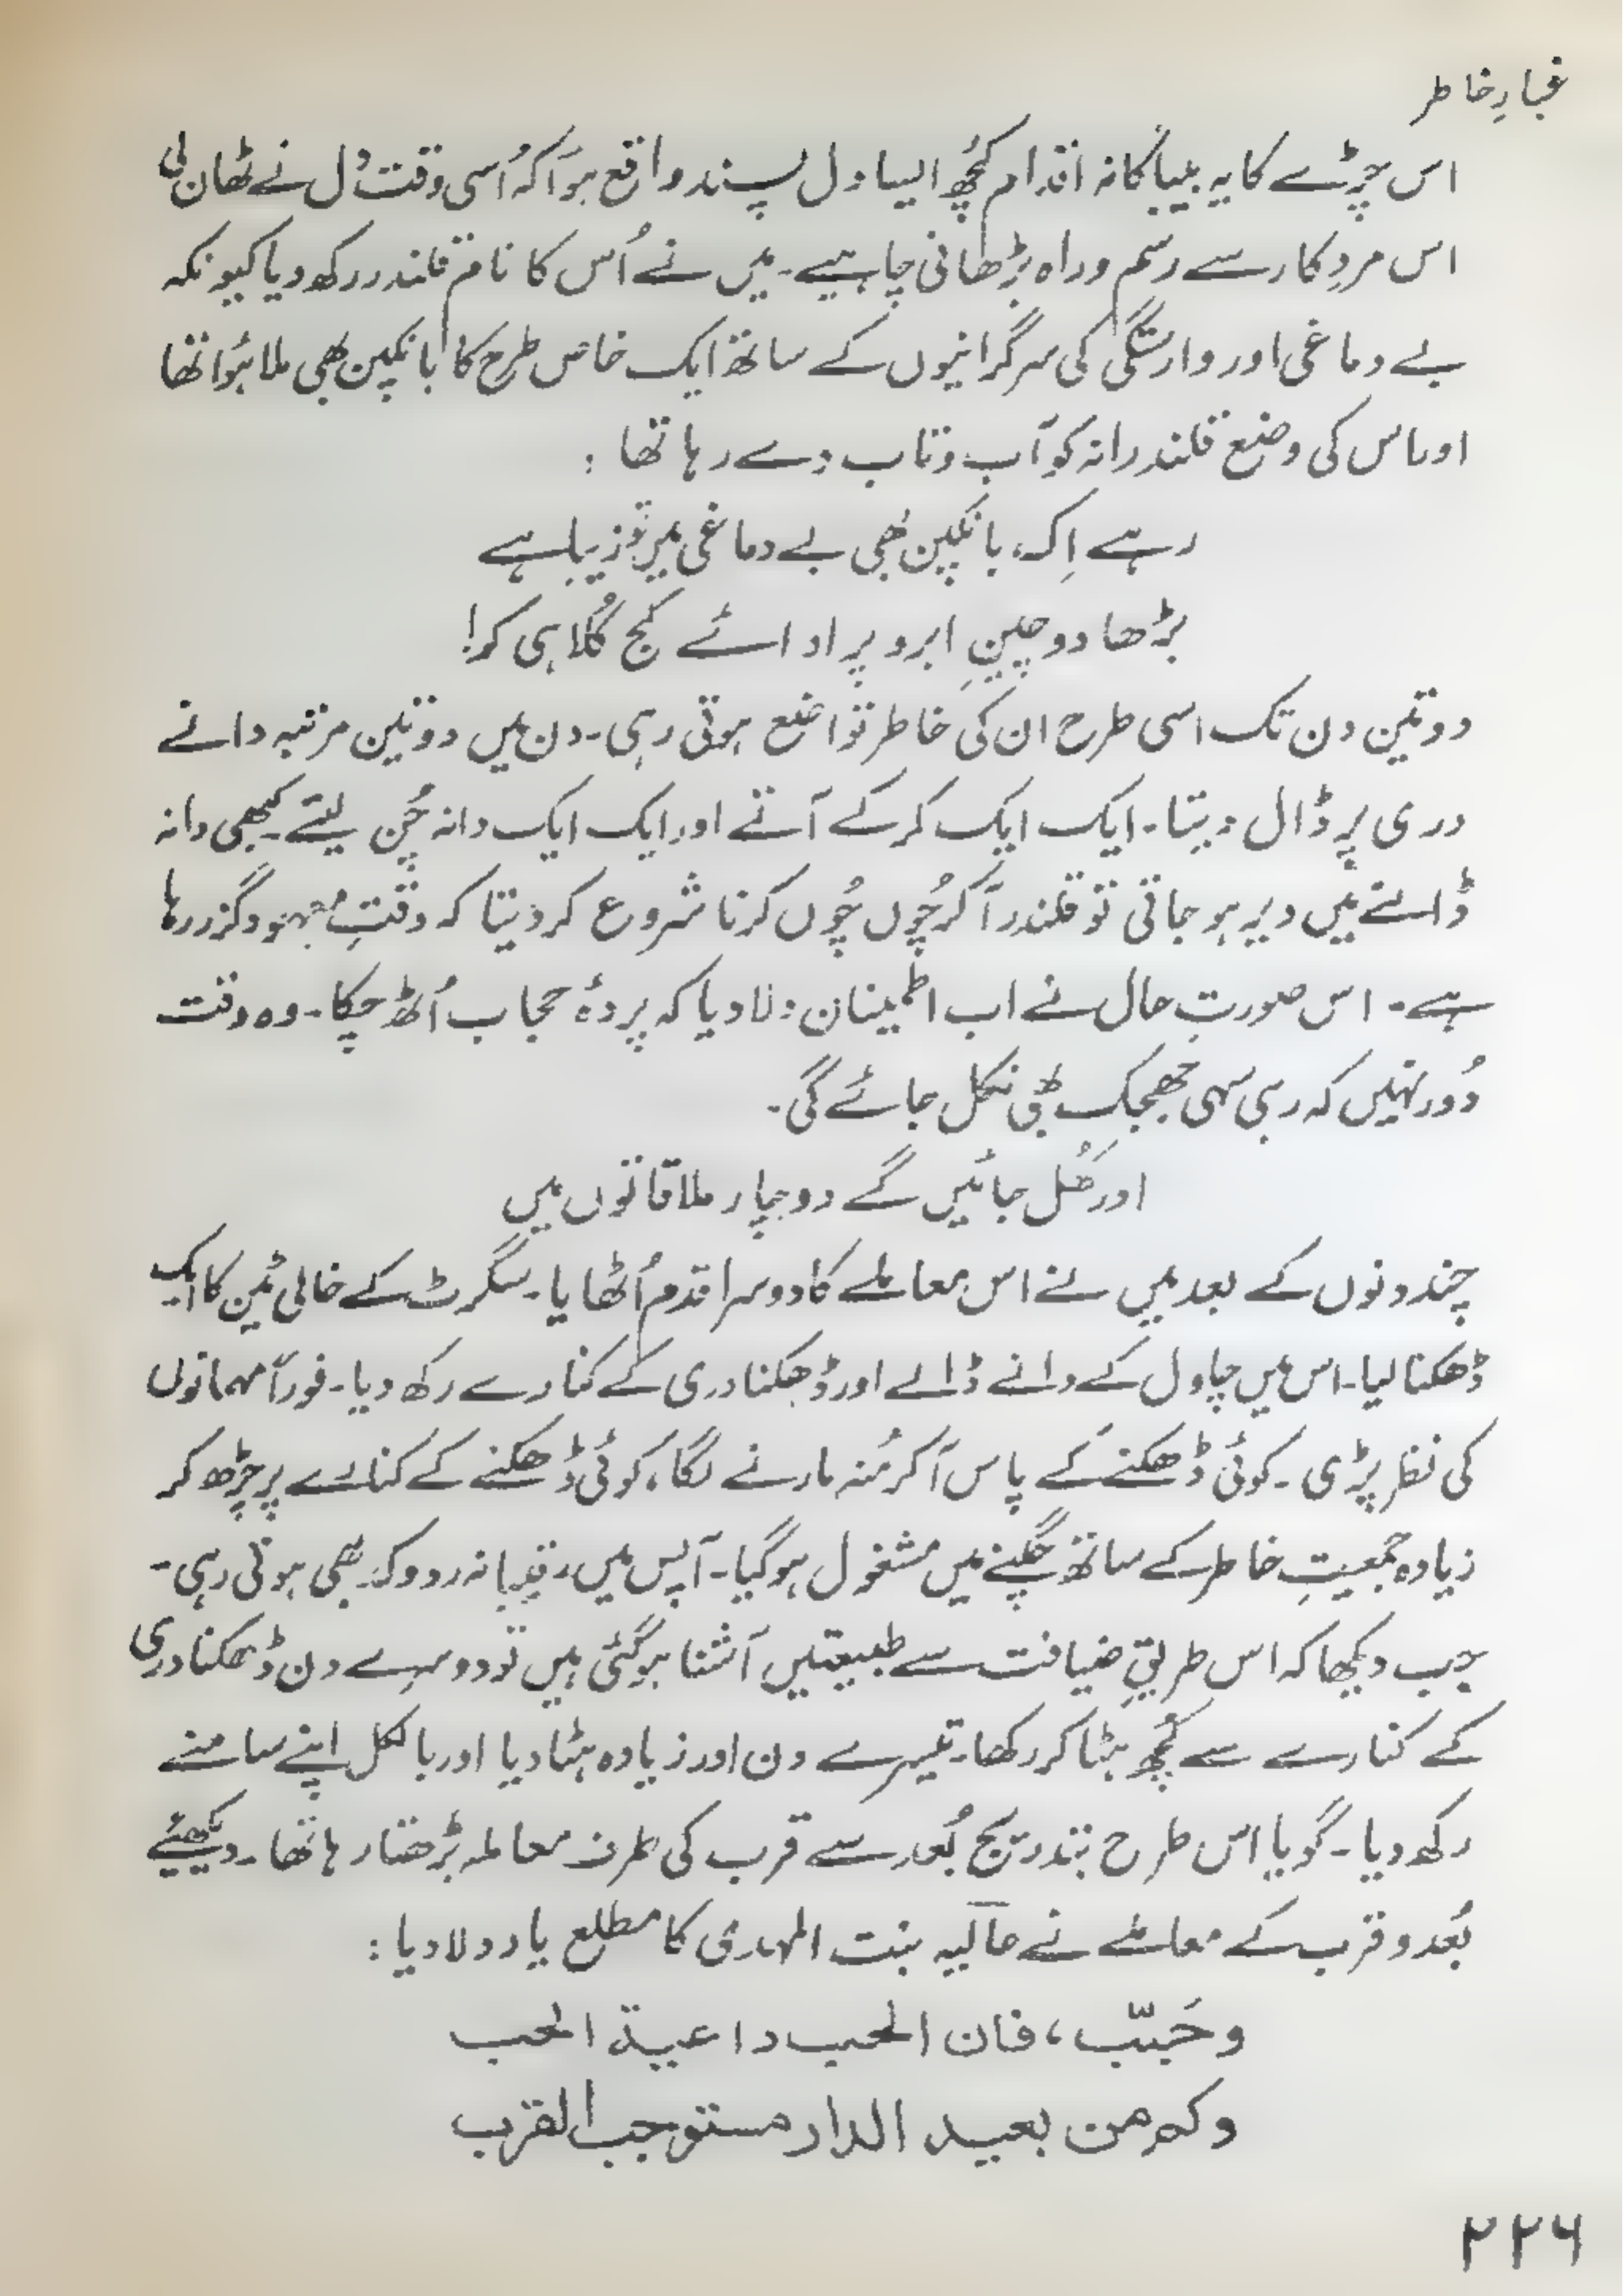 غبارِ خاطر
اس چڑے کا یہ بیباکانہ اقدام کچُھ ایسا دل پسند واقع ہوَا کہ اُسی وقت دل نے ٹھان لی
اس مردِ کار سے رسم و راہ بڑھانی چاہیے۔ میں نے اُس کا نام قلندر رکھ دیا کیونکہ
بے دماغی اور وارستگی کی سرگرانیوں کے ساتھ ایک خاص طرح کا بانکپن بھی ملا ہُوا تھا
اور اس کی وضع قلندرانہ کو آب و تاب دے رہا تھا :
رہے اِک، بانکپن بھی بے دماغی میں تو زیبا ہے
بڑھا دو چینِ ابرو پر ادائے کج کُلاہی کو!
دو تین دن تک اسی طرح ان کی خاطر تواضع ہوتی رہی۔ دن میں دو تین مرتبہ دانے
دری پر ڈال دیتا۔ ایک ایک کر کے آتے اور ایک ایک دانہ چُن لیتے۔ کبھی دانہ
ڈالنے میں دیر ہو جاتی تو قلندر آ کر چُوں چُوں کرنا شروع کر دیتا کہ وقتِ معہود گزر رہا
ہے۔ اس صورتِ حال نے اب اطمینان دلا دیا کہ پردۂ حجاب اُٹھ چکا۔ وہ وقت
دُور نہیں کہ رہی سہی جھجک بھی نکل جائے گی۔
اور کُھل جائیں گے دو چار ملاقاتوں میں
چند دنوں کے بعد میں نے اس معاملے کا دوسرا قدم اُٹھایا۔ سگرٹ کے خالی ٹین کا ایک
ڈھکنا لیا۔ اس میں چاول کے دانے ڈالے اور ڈھکنا دری کے کنارے رکھ دیا۔ فوراً مہمانوں
کی نظر پڑی۔ کوئی ڈھکنے کے پاس آ کر مُنہ مارنے لگا، کوئی ڈھکنے کے کنارے پر چڑھ کر
زیادہ جمعیتِ خاطر کے ساتھ چگنے میں مشغول ہو گیا۔ آپس میں رقیبانہ رد و کد بھی ہوتی رہی۔
جب دیکھا کہ اس طریقِ ضیافت سے طبیعتیں آشنا ہو گئی ہیں تو دوسرے دن ڈھکنا دری
کے کنارے سے کچُھ ہٹا کر رکھا۔ تیسرے دن اور زیادہ ہٹا دیا اور بالکل اپنے سامنے
رکھ دیا۔ گویا اس طرح بتدریج بُعد سے قرب کی طرف معاملہ بڑھتا رہا تھا۔ دیکھئیے
بُعد و قرب کے معاملے نے عالیہ بنت المہدی کا مطلع یاد دلا دیا :
و حَبّب، فان الحب داعیة الحب
وکم من بعید الدار مستوجب القرب
۲۲۶